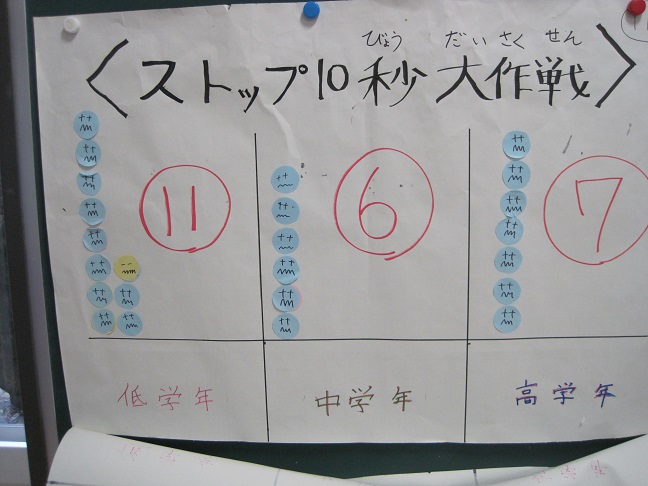 びょう だいさくせん
〈ストップ10秒大作戦〉
11 6 7
低学年 中学年 高学年